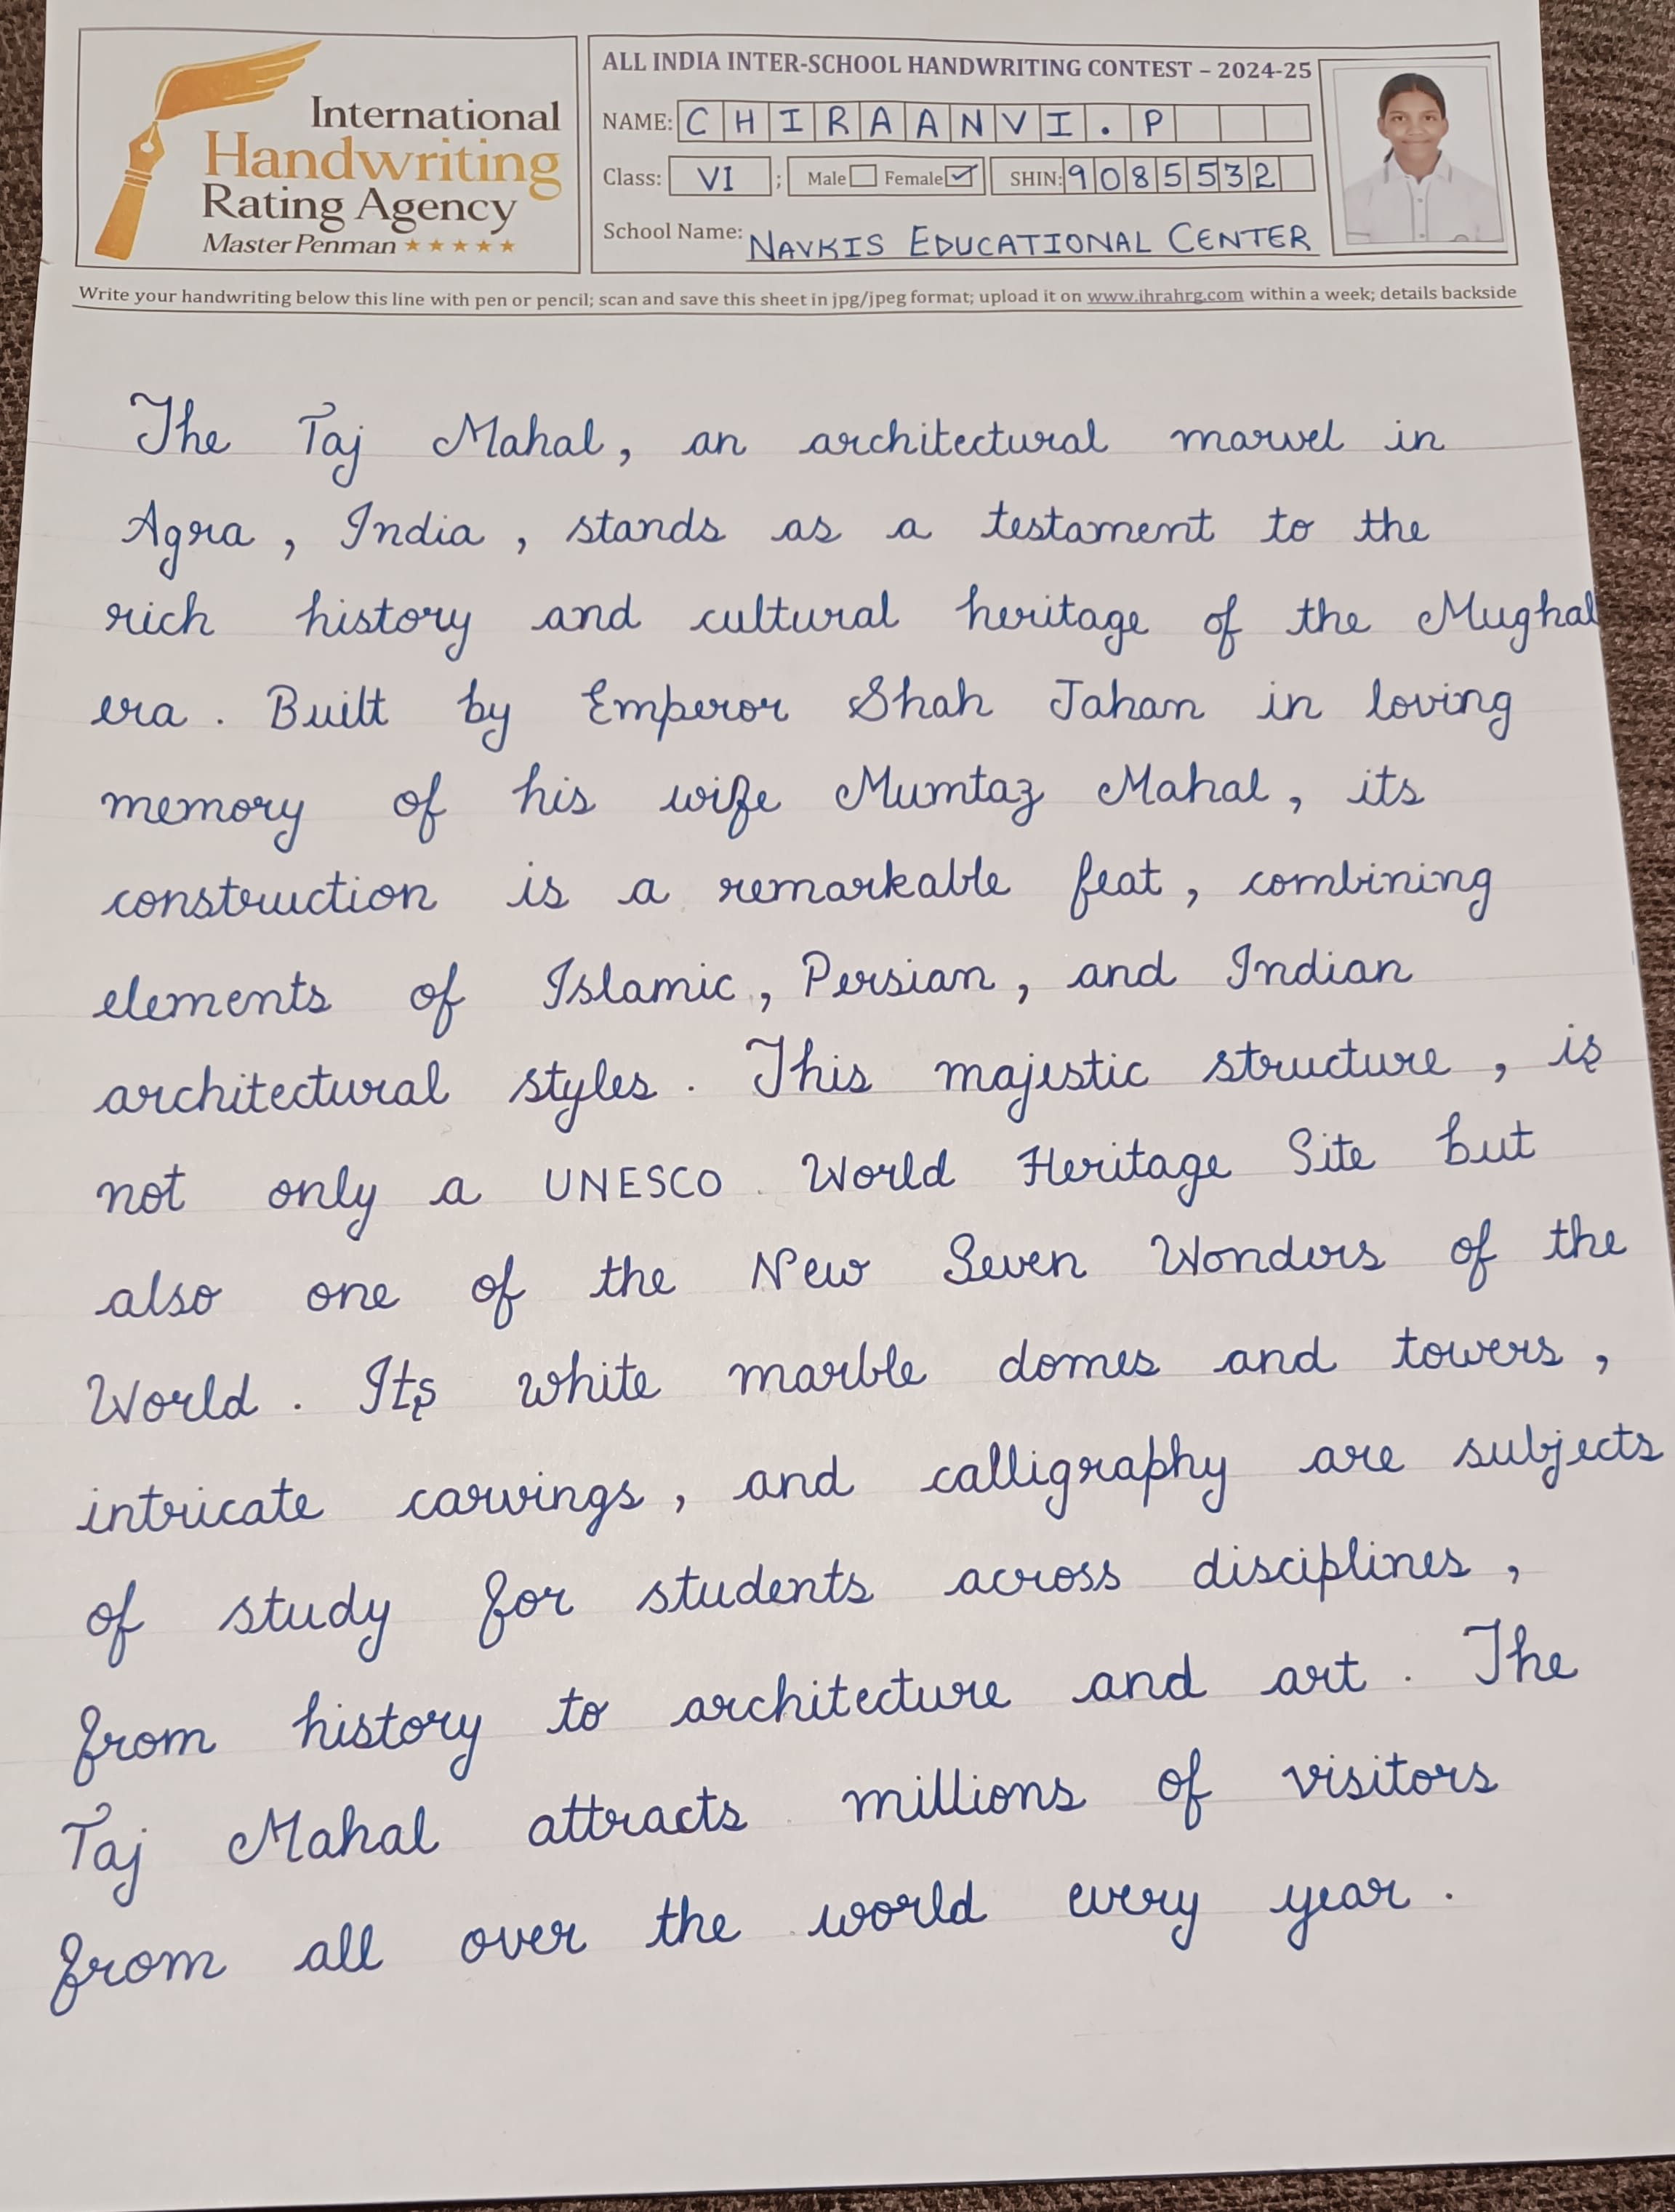 International
Handwriting
Rating Agency
Master Penman ★★★★★
ALL INDIA INTER-SCHOOL HANDWRITING CONTEST – 2024-25
NAME: CHIRAANVI.P
Class: VI ; Male ☐ Female ☑ SHIN: 9085532
School Name: NAVKIS EDUCATIONAL CENTER
Write your handwriting below this line with pen or pencil; scan and save this sheet in jpg/jpeg format; upload it on www.ihrahrg.com within a week; details backside
The Taj Mahal, an architectural marvel in
Agra, India, stands as a testament to the
rich history and cultural heritage of the Mughal
era. Built by Emperor Shah Jahan in loving
memory of his wife Mumtaz Mahal, its
construction is a remarkable feat, combining
elements of Islamic, Persian, and Indian
architectural styles. This majestic structure, is
not only a UNESCO World Heritage Site but
also one of the New Seven Wonders of the
World. Its white marble domes and towers,
intricate carvings, and calligraphy are subjects
of study for students across disciplines,
from history to architecture and art. The
Taj Mahal attracts millions of visitors
from all over the world every year.